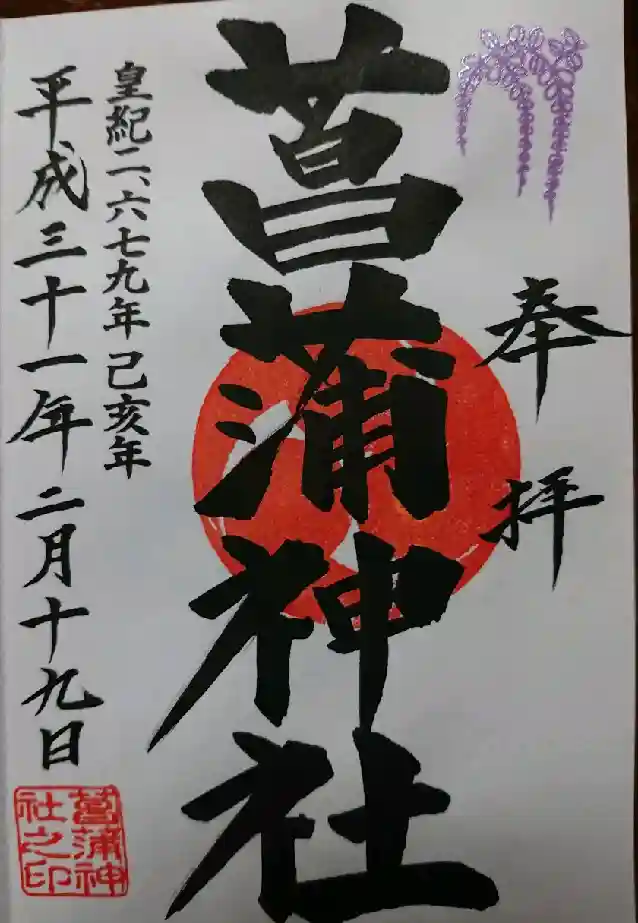 奉拝
菖蒲神社
皇紀二、六七九年己亥年
平成三十一年二月十九日
菖蒲神
社之印